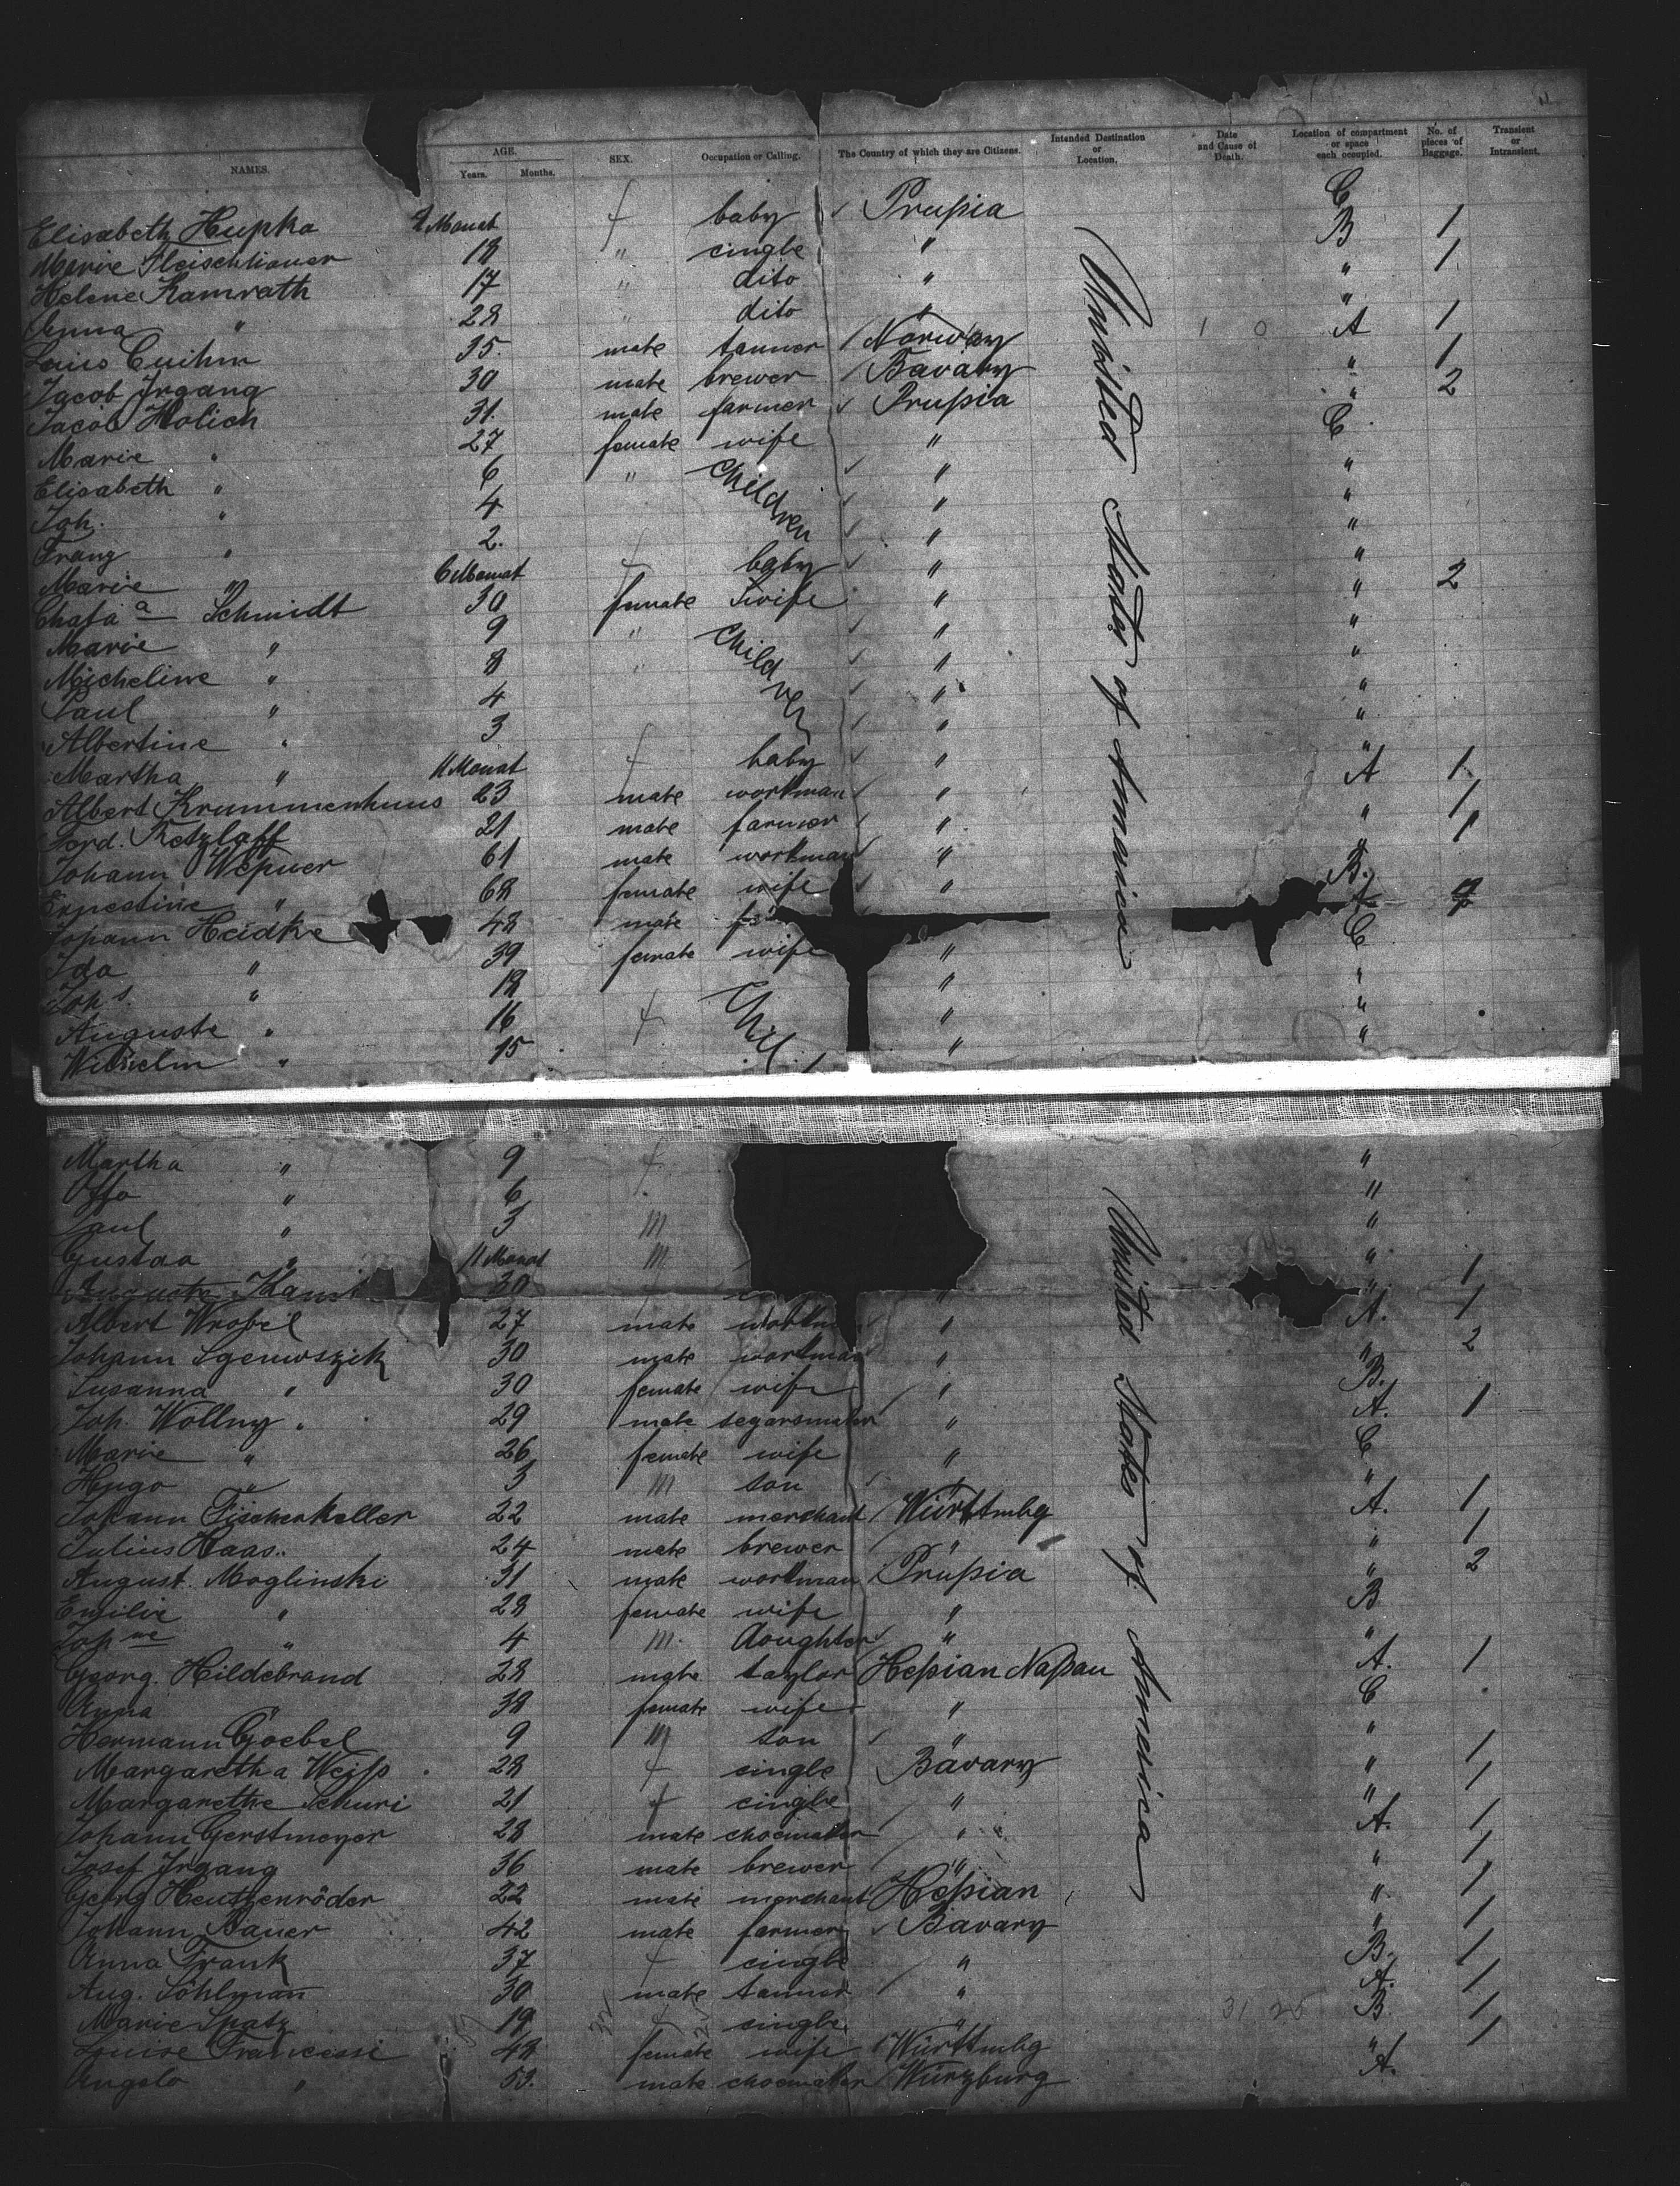 NAMES. AGE. Years. Months. SEX. Occupation or Calling. The Country of which they are Citizens. Intended Destination or Location. Date and Cause of Death. Location of compartment or space each occupied. No. of pieces of Baggage. Transient or Intransient.
Elisabeth Hupka Monat f baby Prußia C
Marie Fleischhauer 18 " cingle " B 1
Helene Kamrath 17 " dito " " 1
Anna " 28 " dito " "
Cuihm 35. male tanner Norway A 1
Jacob Irgang 30 male brewer Bavary " 1
Jacob Holich 31. male farmer Prußia " 2
Marie " 27 female wife " C
Elisabeth " 6 " Children " "
Joh. " 4 " "
Franz " 2. " "
Marie " 6 Monat f baby " "
Schmidt 30 female wife " " 2
Marie " 9 " Children " "
Micheline " 8 " " "
Paul " 4 " "
Albertine " 3 " "
Martha " 11 Monat f baby " "
Albert Krummenhuus 23 male workman " A 1
Ferd. Retzlaff 21 male farmer " " 1
Johann Wepner 61 male workman " " 1
Ernestine " 68 female wife " B.
Johann Heidke 48 male A
Ida " 39 female wife " C
Johs. " 18 " "
Auguste " 16 f " "
Wilhelm " 15 " "
United States of America
Martha " 9 f "
Otto " 6 "
Paul " 3 m "
Gustav " 11 Monat m "
Auguste 30 " " 1
Albert Wrobel 27 male " A. 1
Johann Sgeniwszik 30 male workman " " 2
Susanna " 30 female wife " B.
Joh. Wollny 29 male segarsmaker " A. 1
Marie " 26 female wife " C
Hugo " 3 m son "
Johann Fischerkeller 22 male merchant Württmbg A. 1
Julius Haas 24 male brewer " " 1
August Moglinski 31 male workman Prußia " 2
Emilie " 28 female wife " B
Johne " 4 m. doughter " "
Georg. Hildebrand 28 male taylor Heßian Naßau A. 1
Anna " 38 female wife " C
Hermann Goebel 9 m son " "
Margaretha Weiß 28 f cingle Bavary " 1
Margarethe Schuri 21 f cingle " " 1
Johann Gerstmeyer 28 male choemaker " A. 1
Josef Irgang 36 male brewer " " 1
Georg Heutzenröder 22 male merchant Heßian " 1
Johann Bauer 42 male farmer Bavary " 1
Anna Frank 37 f cingle " B. 1
Aug. Söhlmann 30 male tanner " A. 1
Marie Spatz 19 f cingle " B. 1
Louise Francessi 48 female wife Württmbg " 1
Angelo " 53. male choemaker Würzburg A.
United States of America